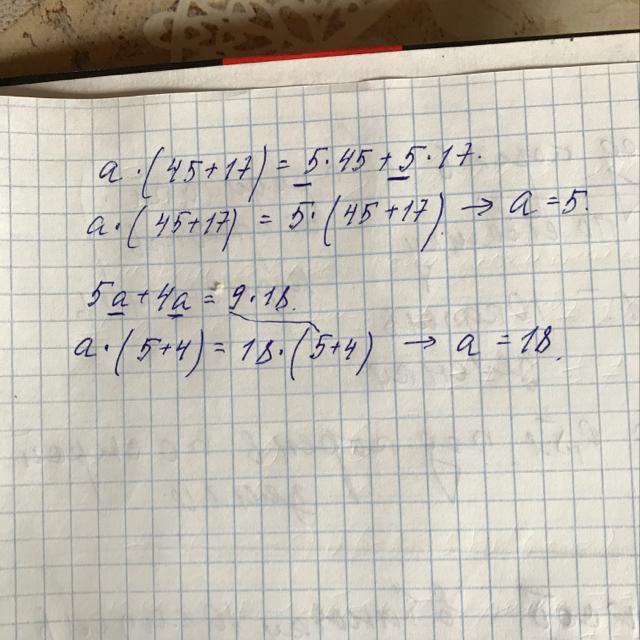 a·(45+17) = 5·45+5·17.
a·(45+17) = 5·(45+17) → a=5.
5a+4a = 9·18.
a·(5+4) = 18·(5+4) → a=18.